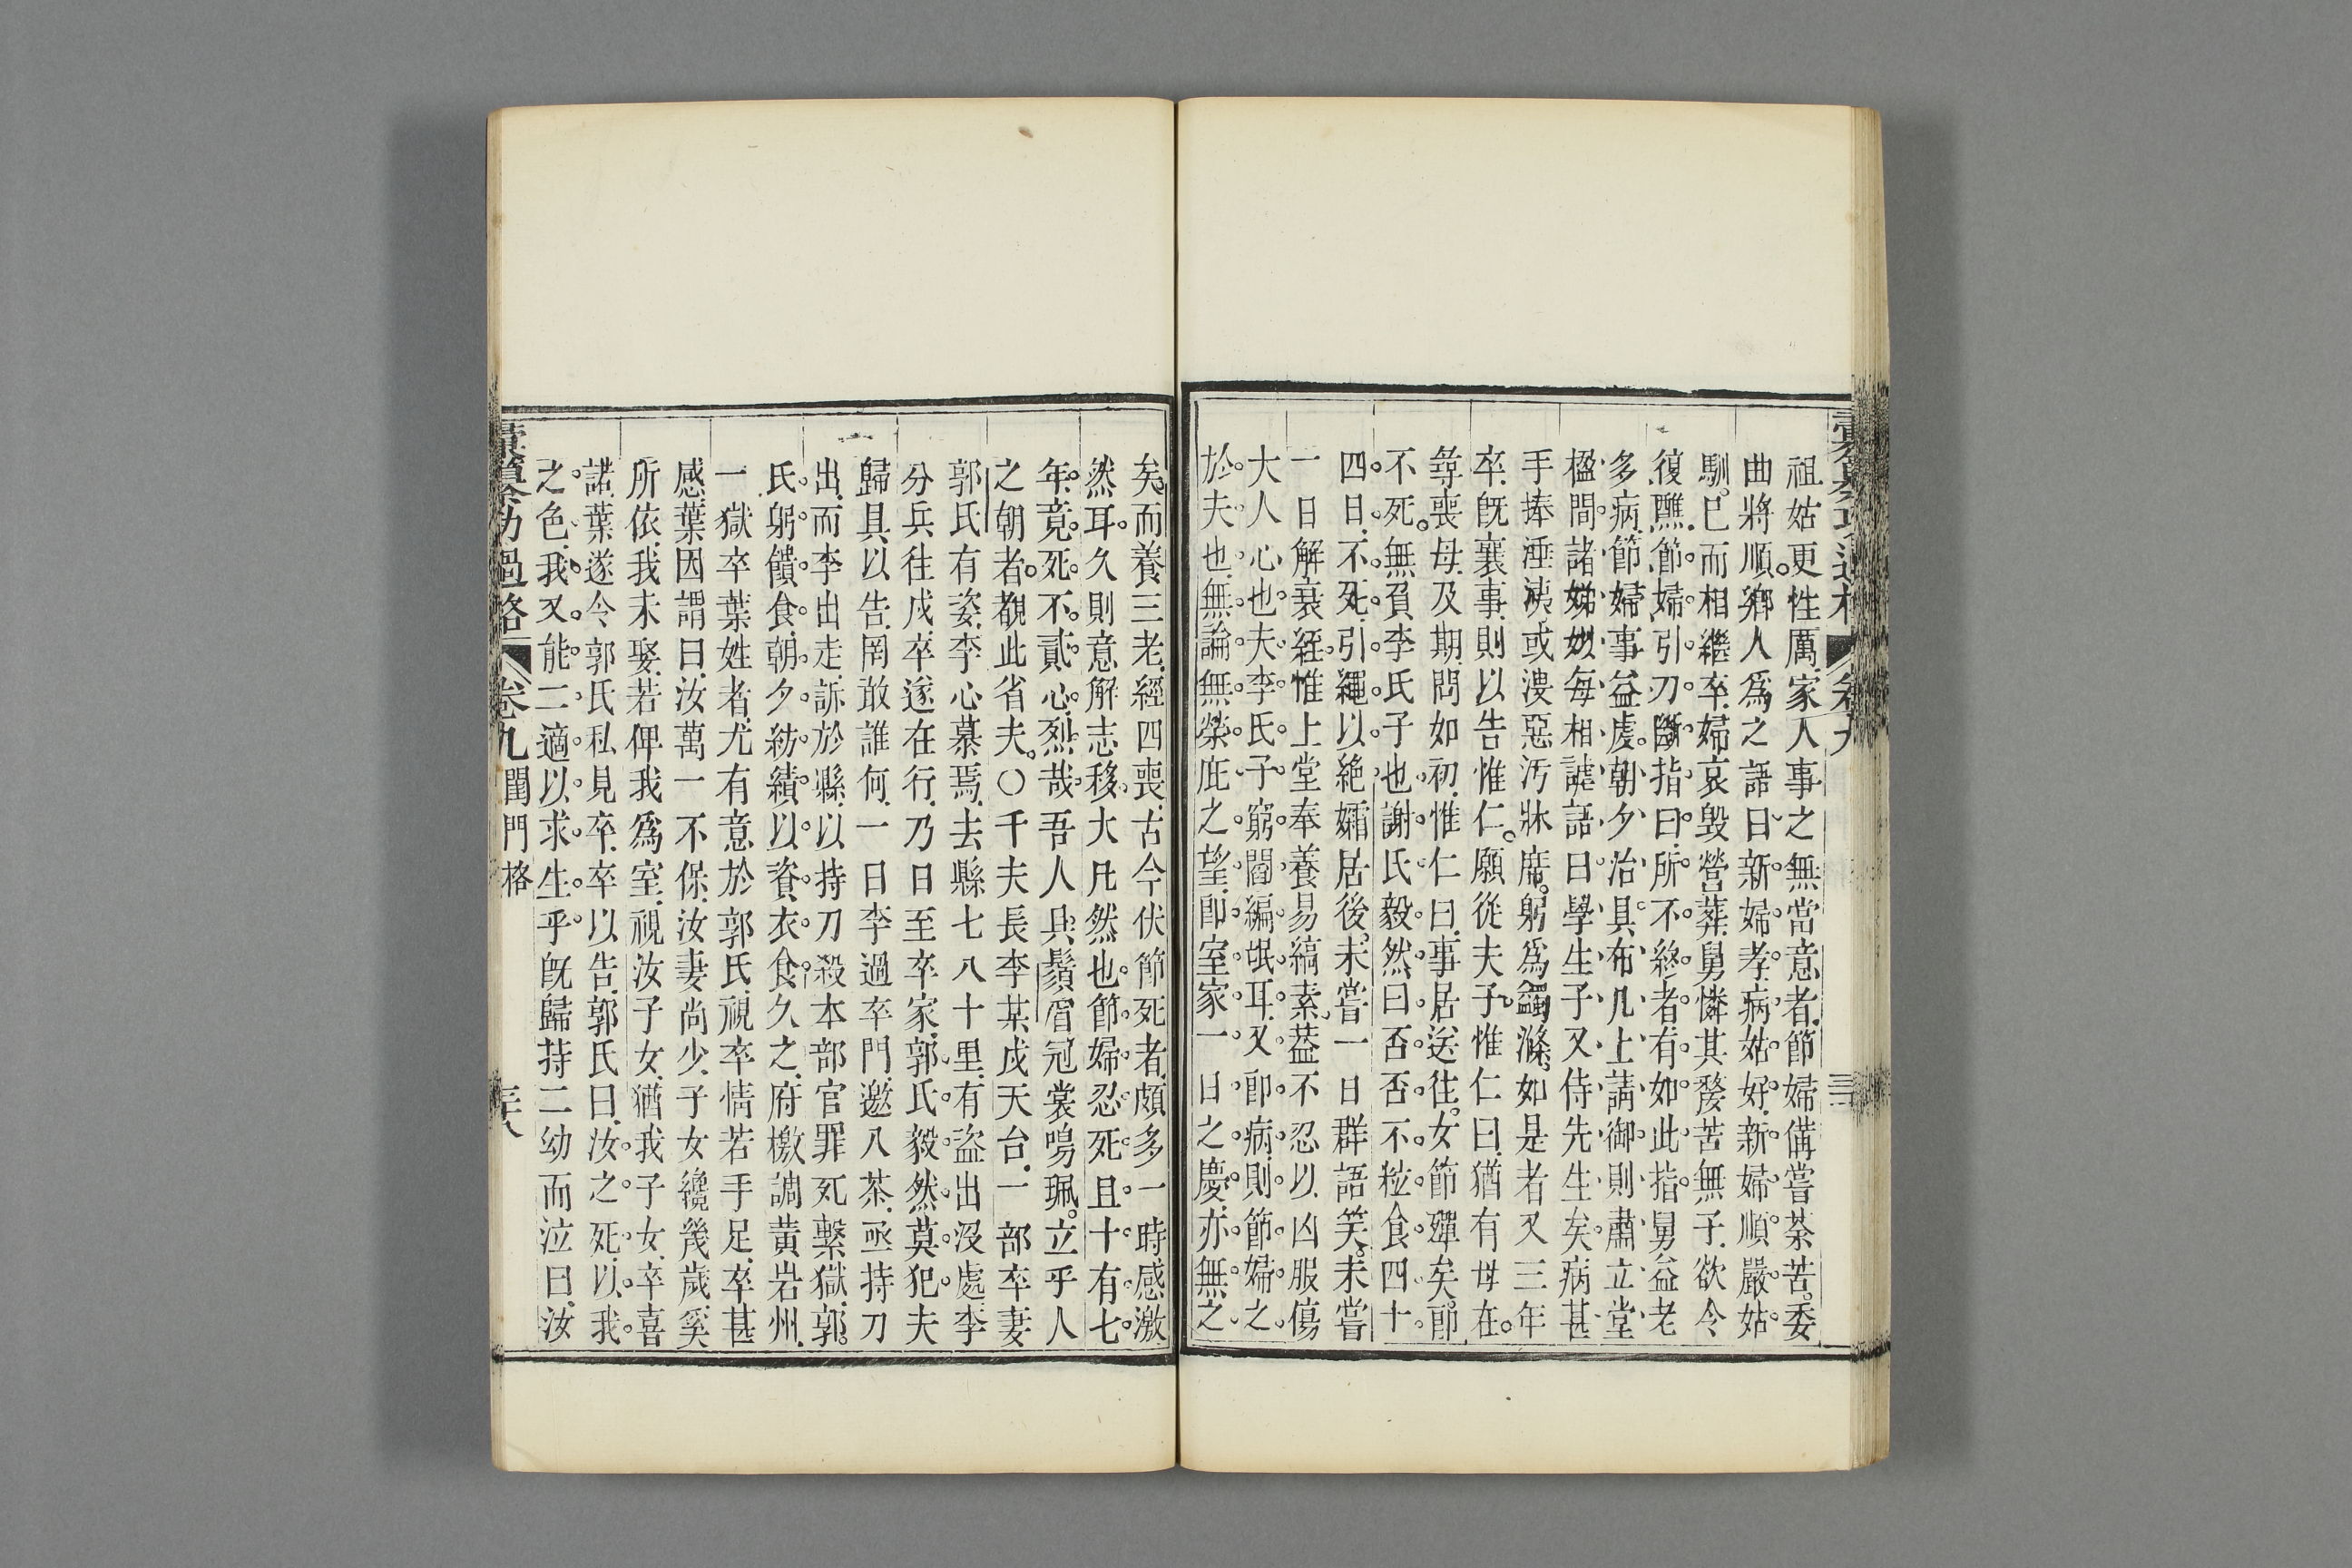 祖姑更性厲家人事之無當意者節婦備嘗荼苦委
曲將順鄉人爲之語曰新婦孝病姑好新婦順嚴姑
馴已而相繼卒婦哀毀營葬舅憐其嫠苦無子欲令
復醮節婦引刀斷指曰所不終者有如此指舅益老
多病節婦事益虔朝夕治具布几上請御則肅立堂
楹間諸娣姒每相謔語曰學生子又侍先生矣病甚
手捧洟或溲惡汚牀席躬爲蠲滌如是者又三年
卒旣襄事則以告惟仁願從夫子惟仁曰猶有母在
尋喪母及期問如初惟仁曰事居送往女節殫矣節
不死無負李氏子也謝氏毅然曰否否不粒食四十
四日不死引繩以絶孀居後未嘗一日群語笑未嘗
一日解衰絰惟上堂奉養易縞素葢不忍以凶服傷
大人心也夫李氏子窮閻編氓耳又卽病則節婦之
於夫也無論無榮庇之望卽室家一日之慶亦無之
矣而養三老經四喪古今伏節死者頗多一時感激
然耳久則意解志移大凡然也節婦忍死且十有七
年竟死不貳心烈哉吾人具鬚眉冠裳鳴珮立乎人
之朝者覩此省夫〇千夫長李某戍天台一部卒妻
郭氏有姿李心慕焉去縣七八十里有盜出沒處李
分兵往戍卒遂在行乃日至卒家郭氏毅然莫犯夫
歸具以告罔敢誰何一日李過卒門邀入茶亟持刀
出而李出走訴於縣以持刀殺本部官罪死繫獄郭
氏躬饋食朝夕紡績以資衣食久之府檄調黃岩州
一獄卒葉姓者尤有意於郭氏視卒情若手足卒甚
感葉因謂曰汝萬一不保汝妻尚少子女纔幾歲奚
所依我未娶若俾我爲室視汝子女猶我子女卒喜
諾葉遂令郭氏私見卒卒以告郭氏曰汝之死以我
之色我又能二適以求生乎旣歸持二幼而泣曰汝
彙纂功過格 卷九 閨門格 三十八